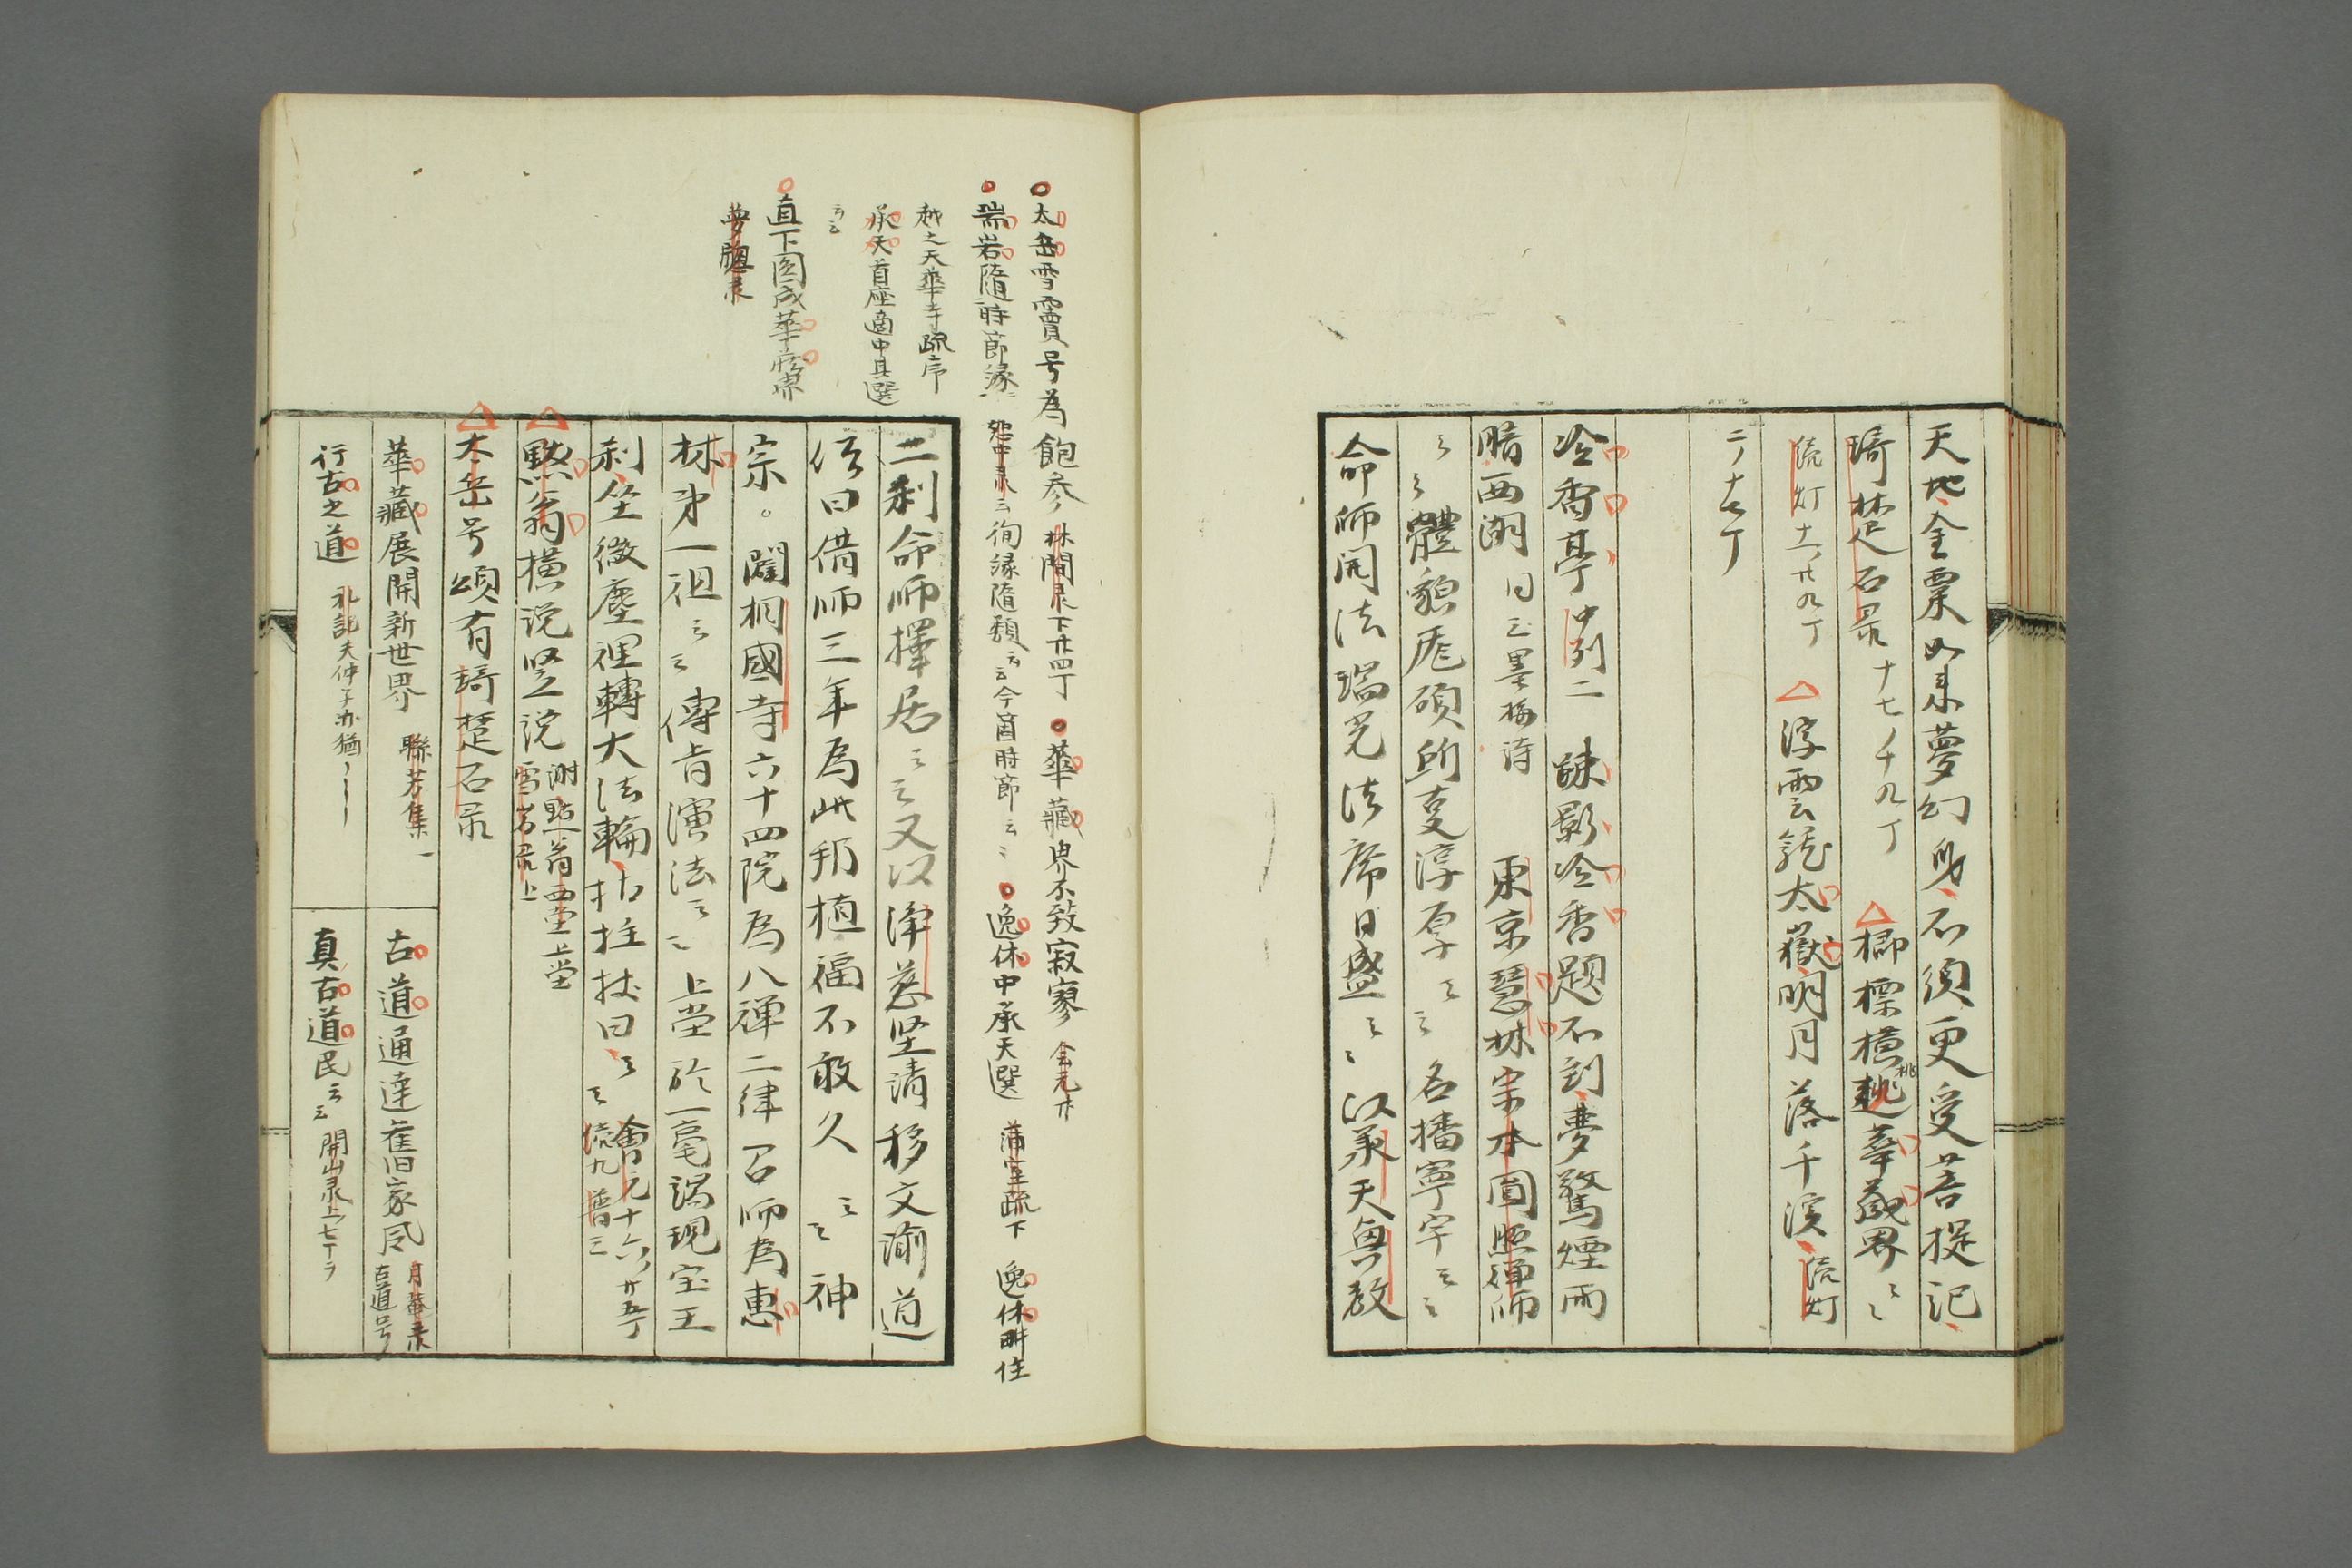 天地金粟如来夢幻身不須更受菩提記
琦楚石录十七ノ十九丁 △櫛標横趒華蔵界云云
桃
続灯十六廿九丁 △浮雲籠太嶽明月落千溪 続灯
二ノ十七丁
冷香亭 中列二 疎影冷香題不到夢驚煙雨
暗西湖 日工墨梅詩 東京慧林宗本圓照禅師
云云體貌厖碩所夐淳厚云云名播寧宇云云
命師開法瑞光法席日盛云云以承天興教
太岳雪竇号為飽参 林間录下廿四丁 華藏界不致寂寥 会元廿
瑞岩隨時節縁 恕中录云徇縁隨類云云今茵時節云云 逸休中承天選 蒲室疏下 逸休畊住
越之天華寺疏序
承天首座適中其選
云云
直下圓成華蔵界
夢窓录
二刹命師擇居云云又以浄慈堅請移文諭道
俗曰借師三年為此邦植福不敢久云云神
宗。闢相國寺六十四院為八禅二律召師為惠
林第一祖云云傳旨演法云云上堂於一毫端現宝王
刹坐微塵裡轉大法輪拈拄杖曰云云 會元十六ノ廿五丁
続九 普三
△黙翁横説竖説 謝黙翁西堂上堂
雪岩录上
△太岳号頌有琦楚石录
華藏展開新世界 聯芳集一
古道通達舊家风 月菴录
古道号
行古之道 礼記夫仲子亦猶
真古道民云云 開山录上七丁ラ